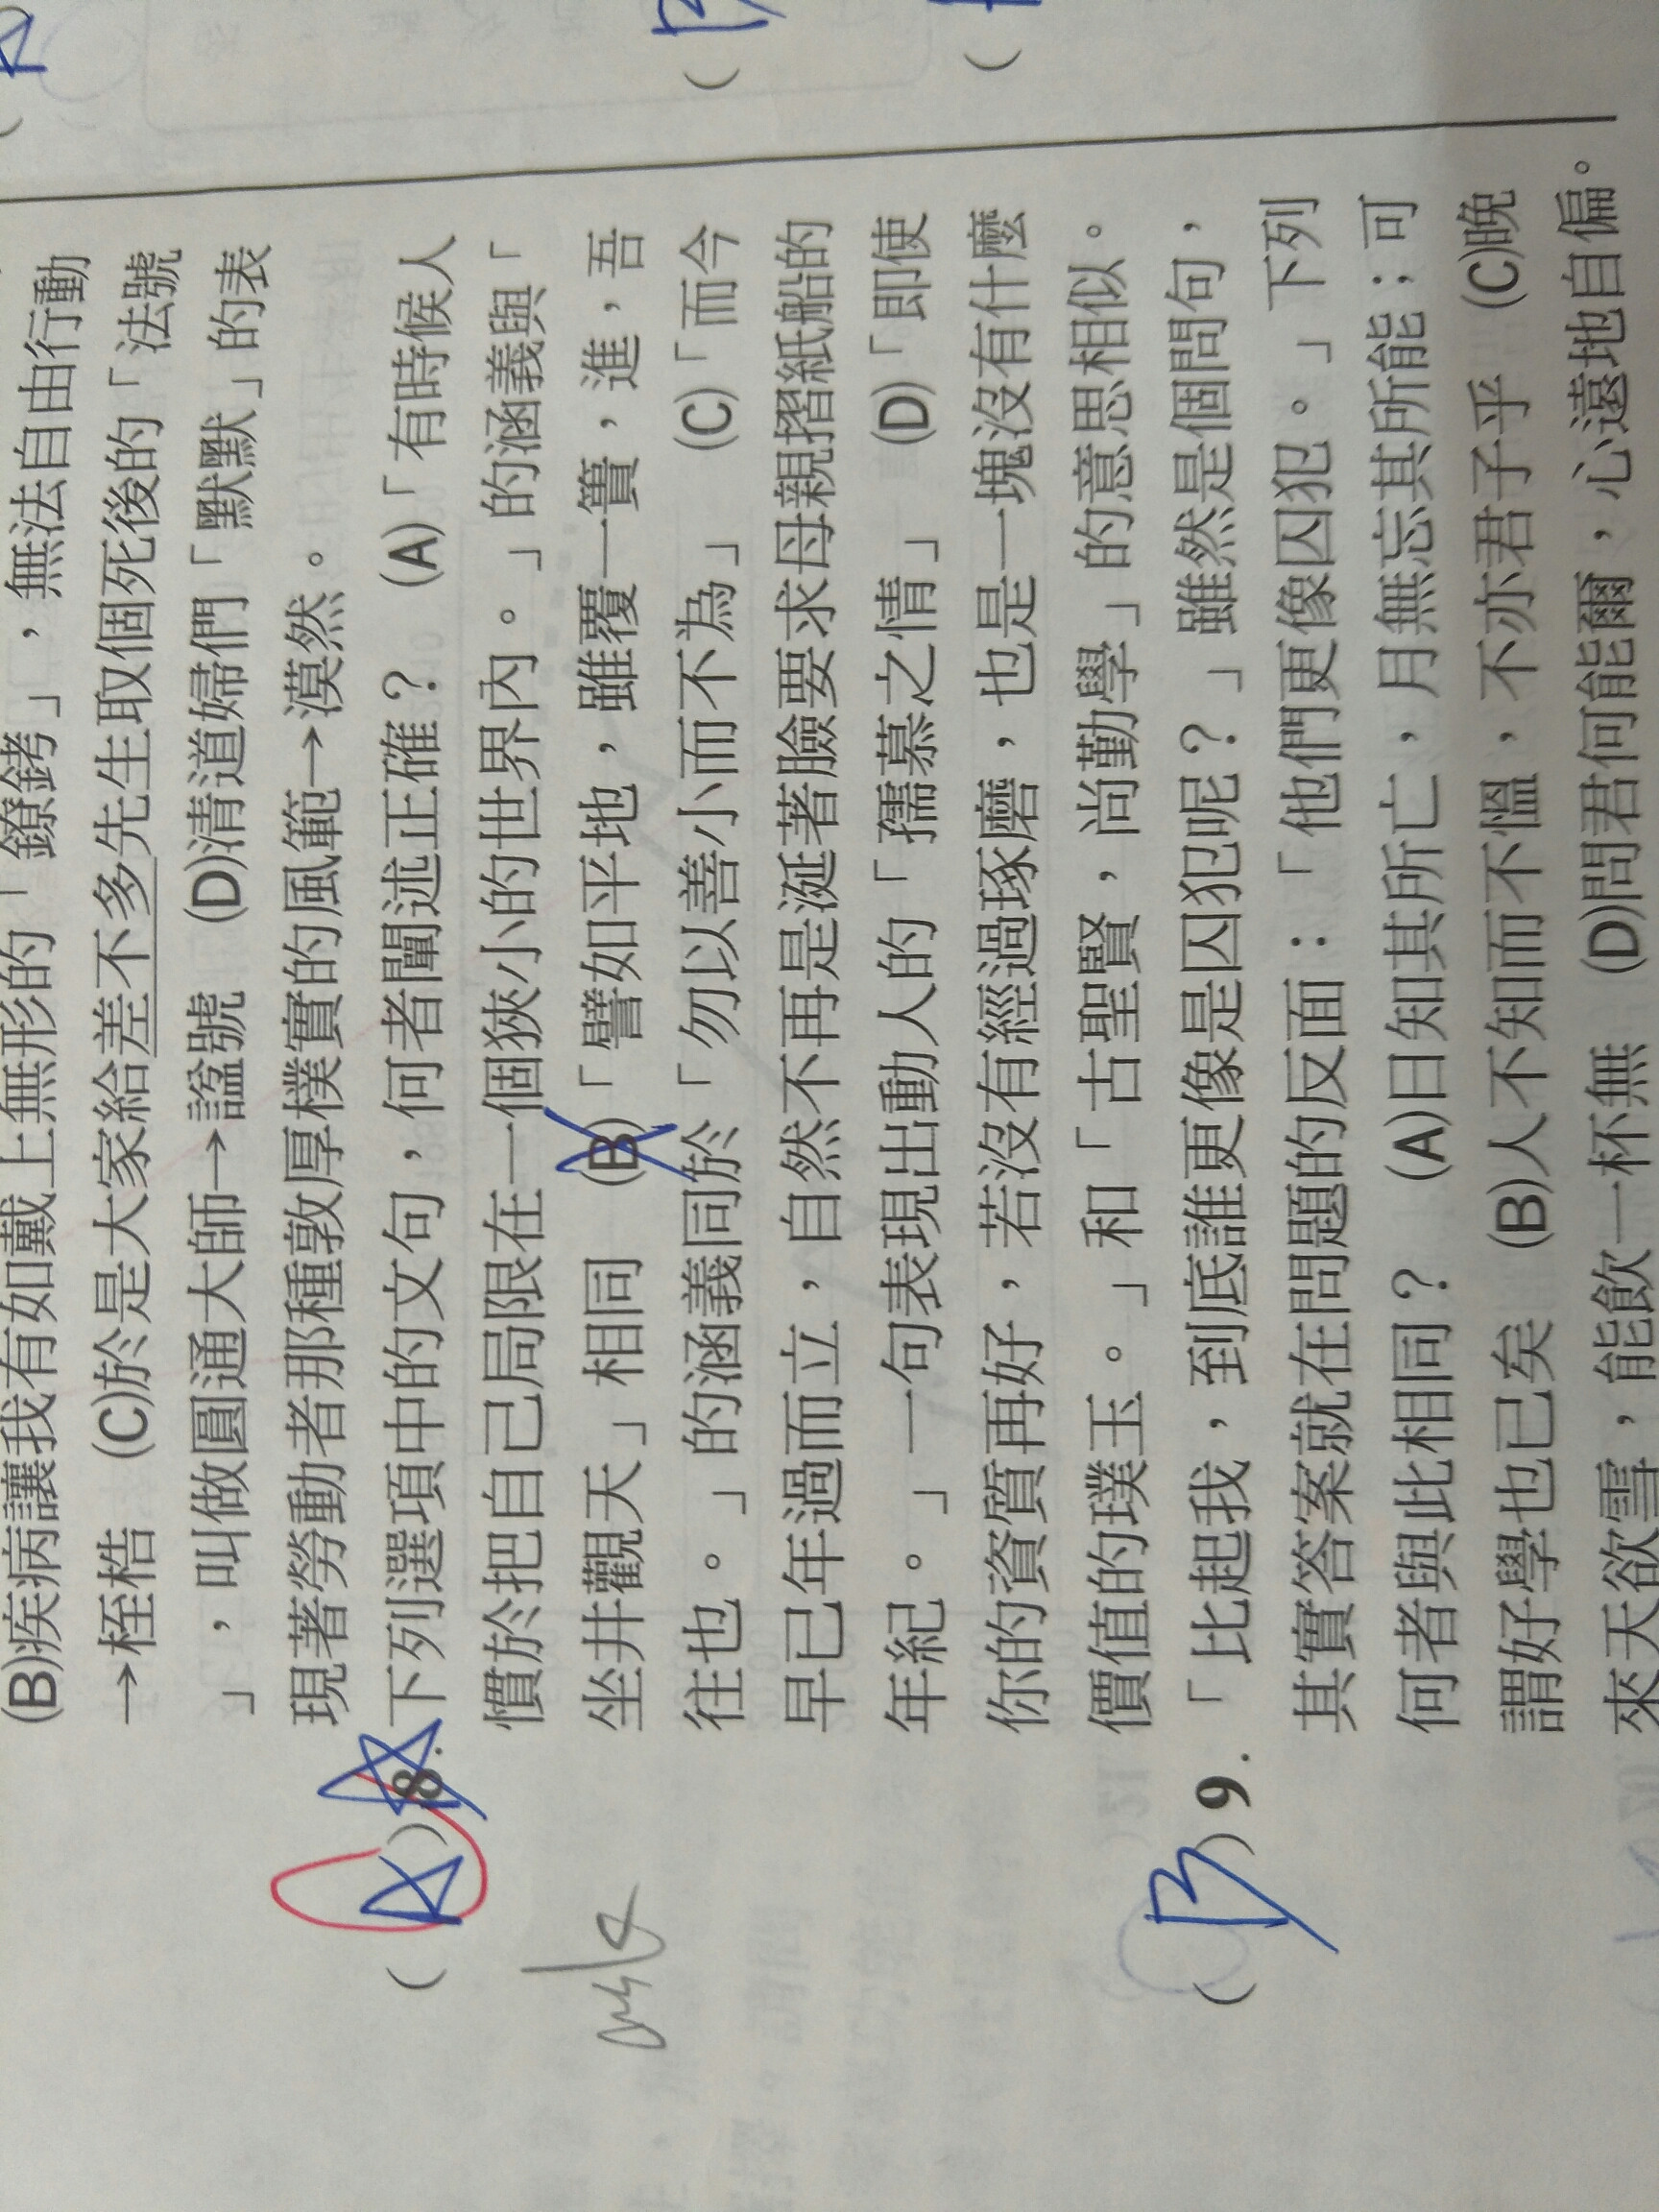 (B)疾病讓我有如戴上無形的「鐐銬」，無法自由行動
→桎梏　(C)於是大家給差不多先生取個死後的「法號
」，叫做圓通大師→諡號　(D)清道婦們「默默」的表
現著勞動者那種敦厚樸實的風範→漠然。
(A)8.下列選項中的文句，何者闡述正確？　(A)「有時候人
慣於把自己局限在一個狹小的世界內。」的涵義與「
坐井觀天」相同　(B)「譬如平地，雖覆一簣，進，吾
往也。」的涵義同於「勿以善小而不為」　(C)「而今
早已年過而立，自然不再是涎著臉要求母親摺紙船的
年紀。」一句表現出動人的「孺慕之情」　(D)「即使
你的資質再好，若沒有經過琢磨，也是一塊沒有什麼
價值的璞玉。」和「古聖賢，尚勤學」的意思相似。
(B)9.「比起我，到底誰更像是囚犯呢？」雖然是個問句，
其實答案就在問題的反面：「他們更像囚犯。」下列
何者與此相同？　(A)日知其所亡，月無忘其所能；可
謂好學也已矣　(B)人不知而不慍，不亦君子乎　(C)晚
來天欲雪，能飲一杯無　(D)問君何能爾，心遠地自偏。